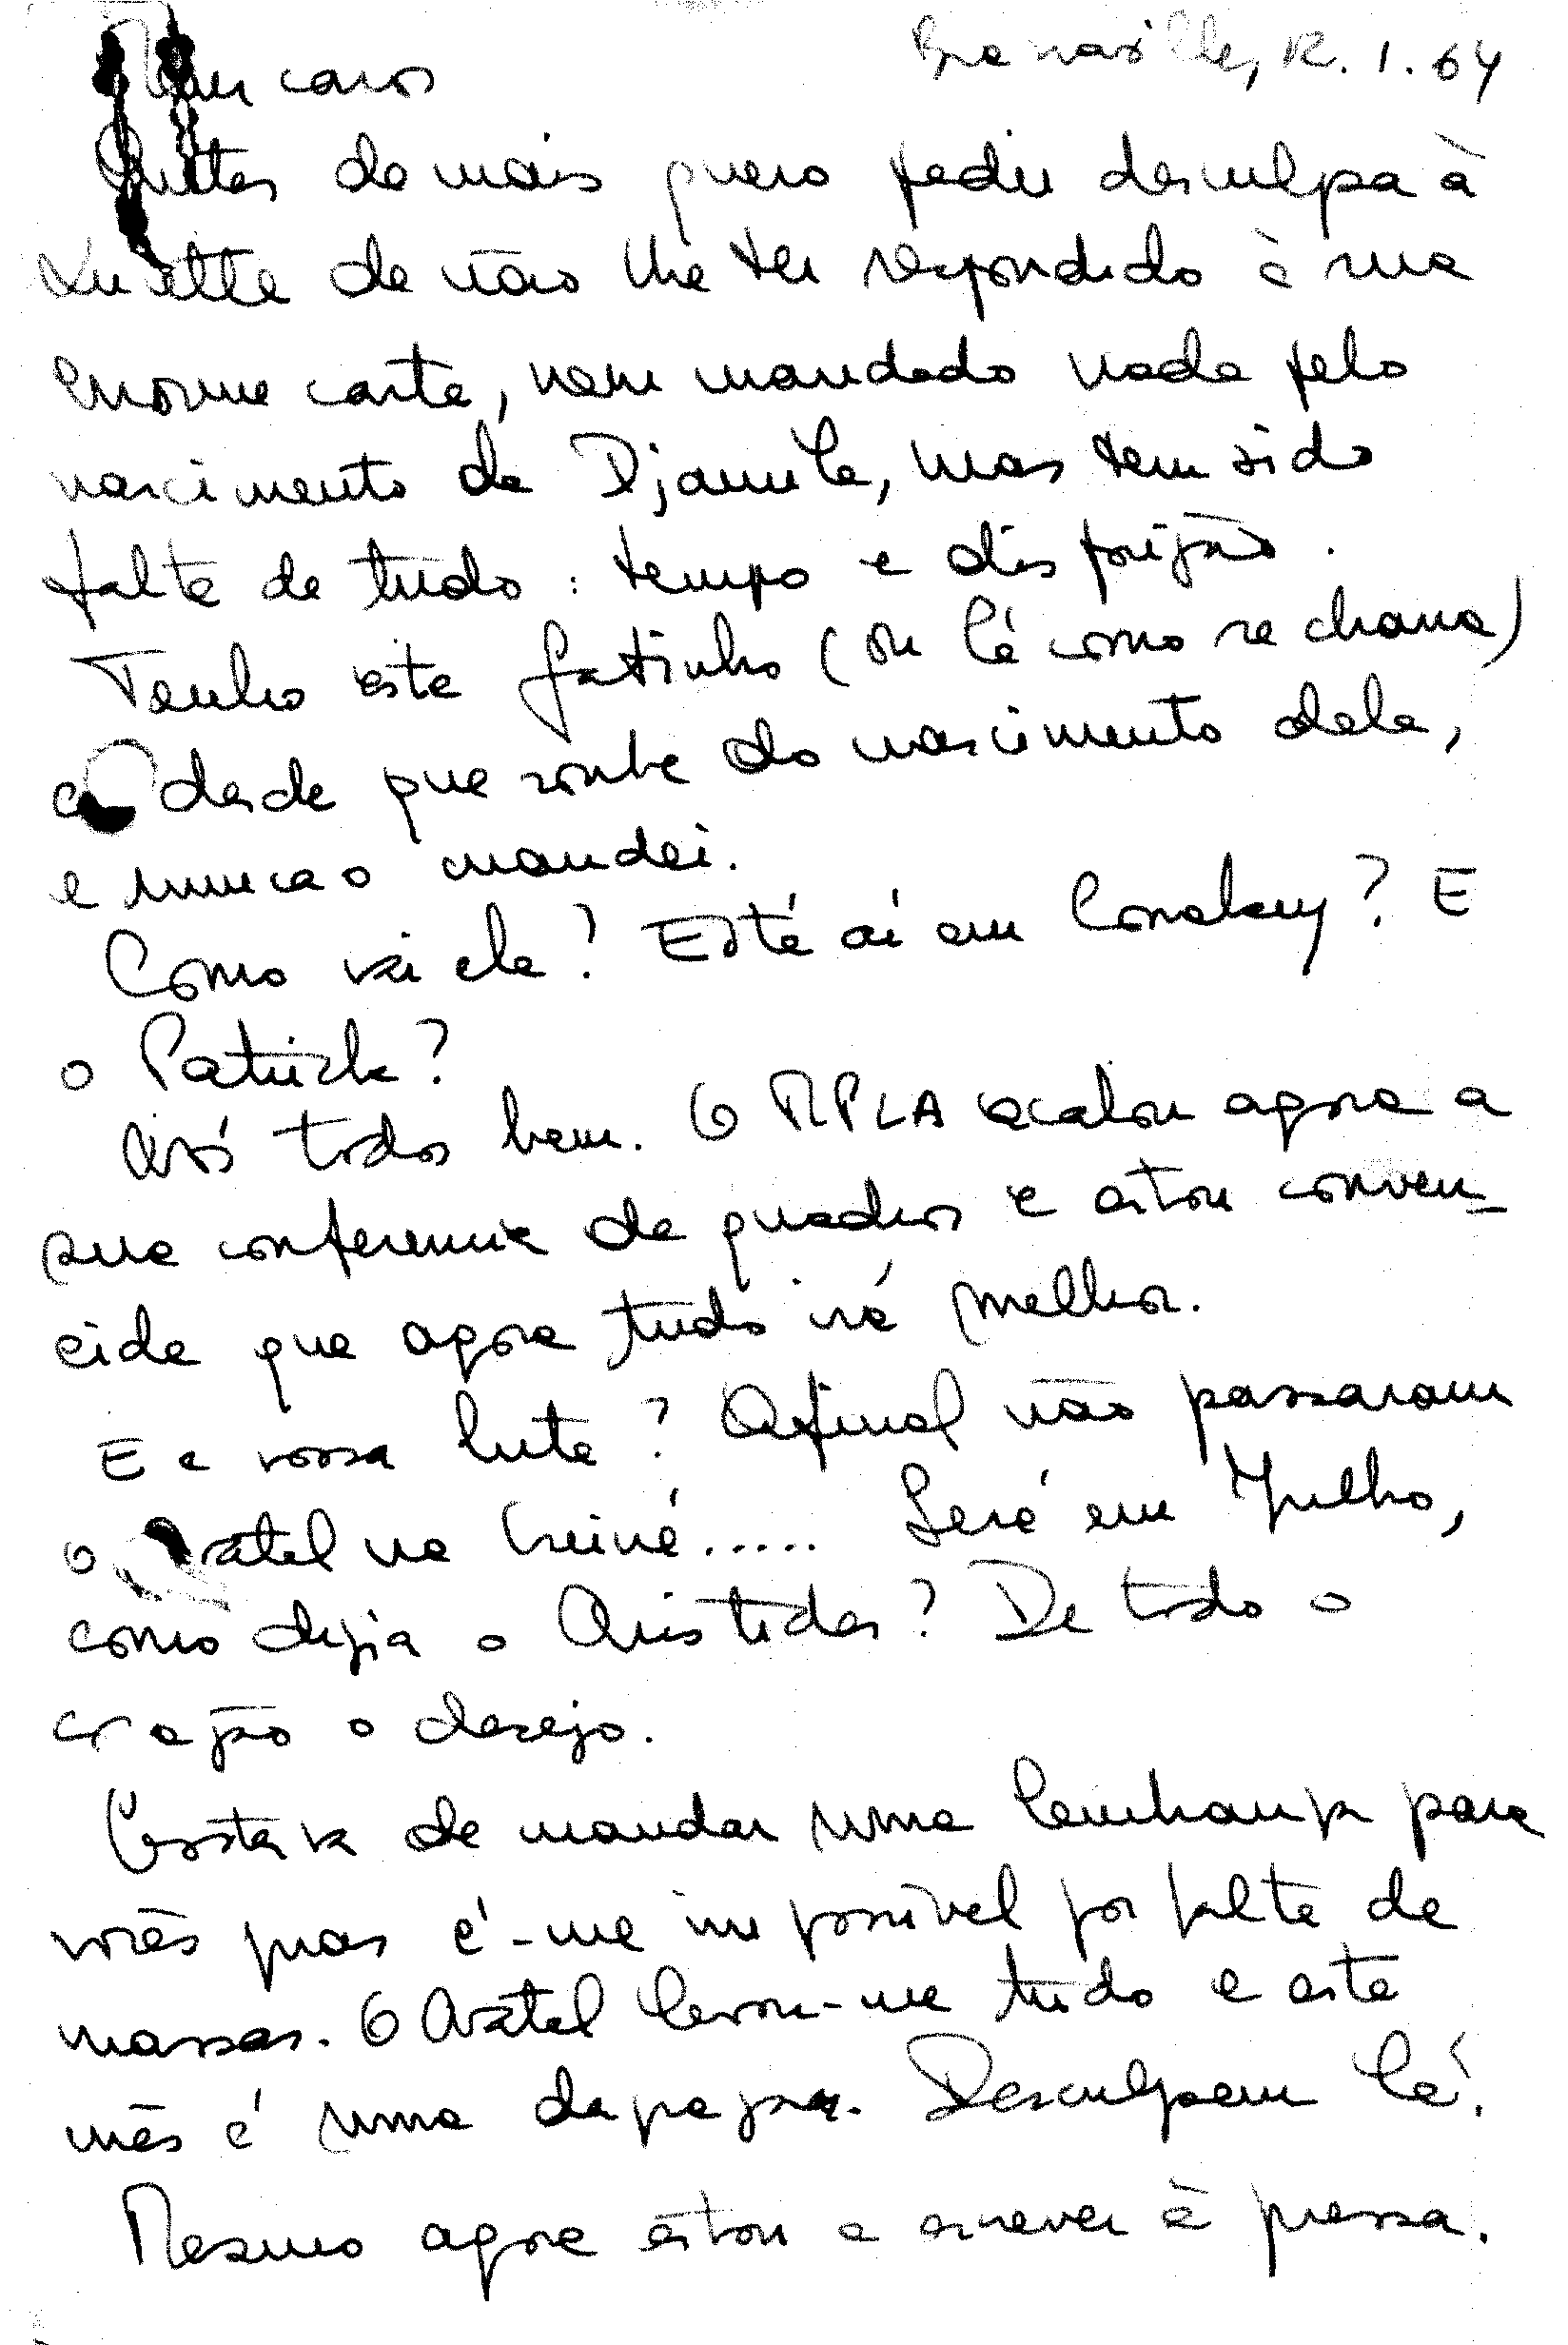 Brazzaville, 12.1.64
Meus caros
Antes de mais quero pedir desculpa à
Lucette de não lhe ter respondido à sua
enorme carta, nem mandado nada pelo
nascimento da Djamila, mas tem sido
falta de tudo: tempo e disposição.
Tenho este fatinho (ou lá como se chama)
cá desde que soube do nascimento dela,
e nunca o mandei.
Como vai ela? Está aí em Conakry? E
o Patrick?
Nós todos bem. O MPLA acabou agora a
sua conferencia de quadros e estou conven-
cida que agora tudo irá melhor.
E a vossa luta? Afinal não passaram
o Natal na Guiné..... Será em Julho,
como dizia o Aristides? De todo o
coração o desejo.
Gostava de mandar uma lembrança para
vocês mas é-me impossível por falta de
massas. O Natal levou-me tudo e este
mês é uma desgraça. Desculpem lá.
Mesmo agora estou a escrever à pressa.